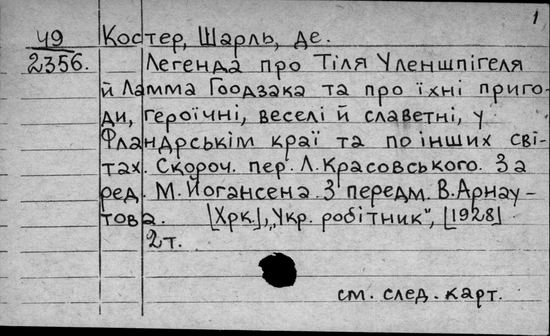 1
49 Костер, Шарль, де.
2356. Легенда про Тіля Уленшпігеля
й Ламма Гоодзака та про їхні приго-
ди, героїчні, веселі й славетні, у
Фландрськім краї та по інших сві-
тах. Скороч. пер. Л. Красовського. За
ред. М. Йогансена. З передм. В. Арнау-
това. [Хрк.], „Укр. робітник", [1928]
2т.
см. след. карт.